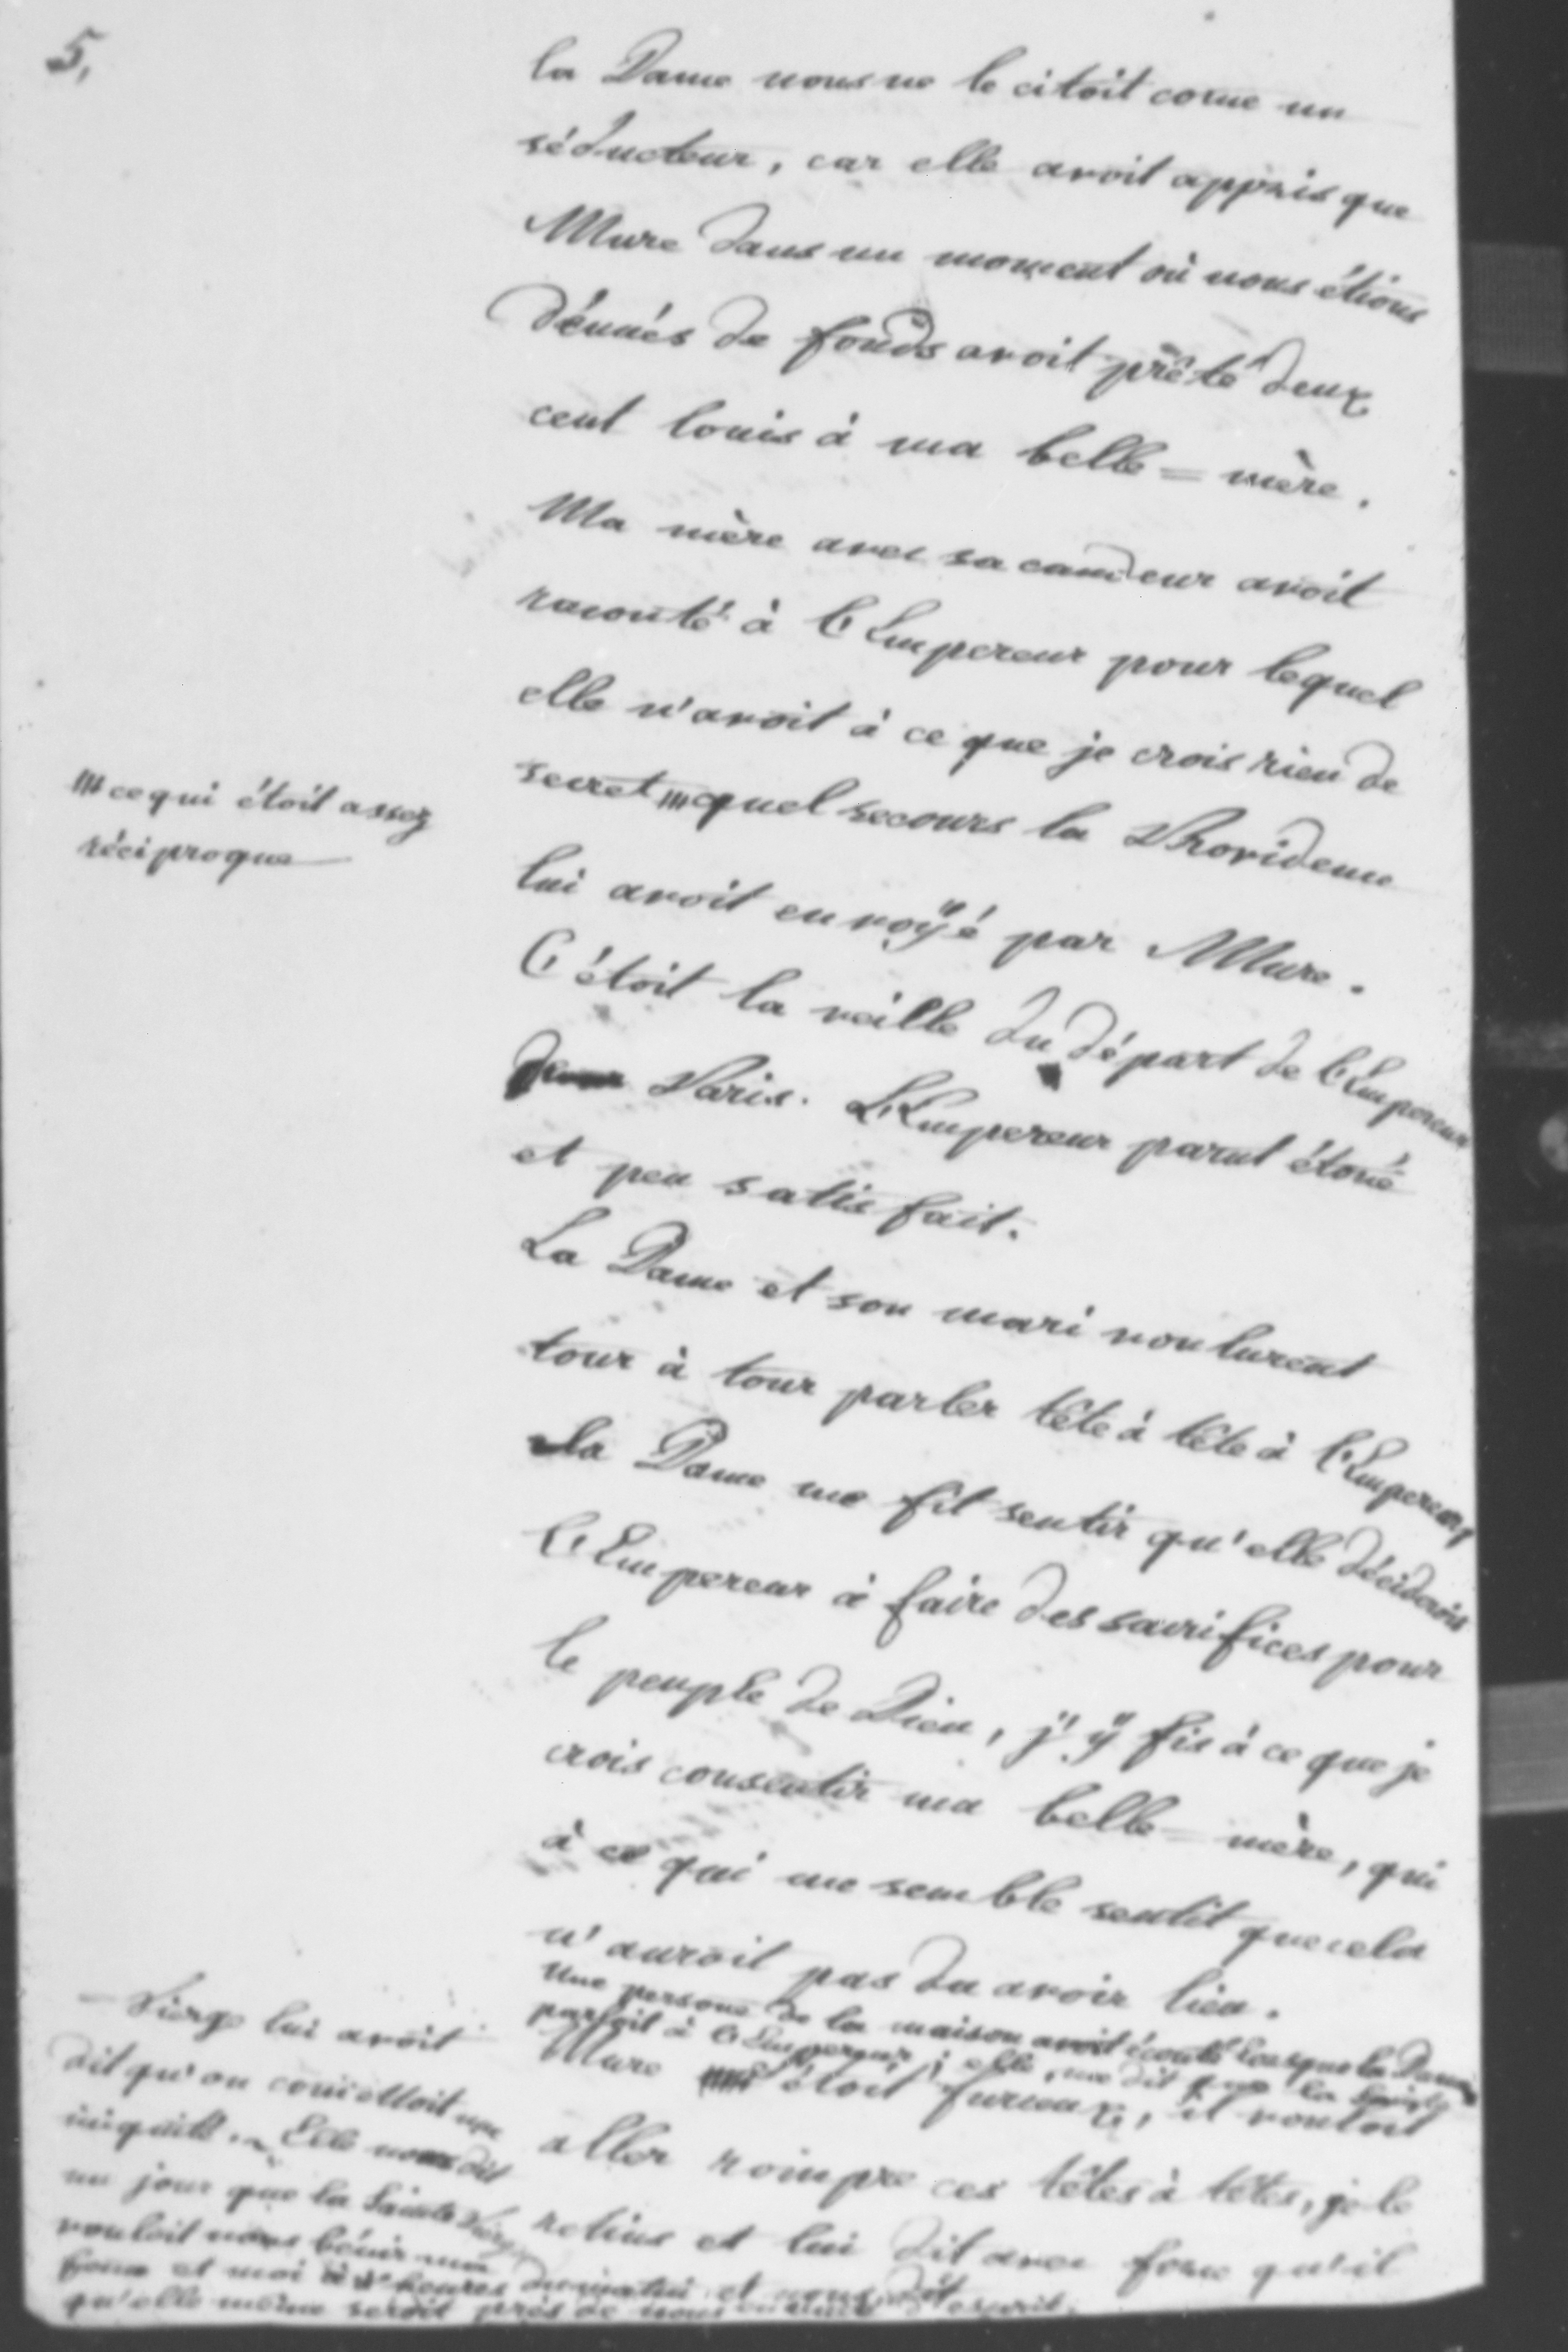 5,
la Dame nous ne le citoit come un
séducteur, car elle avoit appris que
Mure dans un moment où nous étions
dénués de fonds avoit prêté deux
cent louis à ma belle=mère.
Ma mère avec sa candeur avoit
raconté à l'Empereur pour lequel
elle n'avoit à ce que je crois rien de
secret quel secours la Providence
lui avoit envoÿé par Mure.
C'étoit la veille du départ de l'Empereur
Paris. L'Empereur parut étoné
et peu satisfait.
La Dame et son mari voulurent
tour à tour parler tête à tête à l'Empereur
la Dame me fit sentir qu'elle décideroit
l'Empereur à faire des sacrifices pour
le peuple de Dieu, j'ÿ fis à ce que je
crois consentir ma belle-mère, qui
à ce qui me semble sentit que cela
n'auroit pas du avoir lieu.
Une persone de la maison avoit écouté lorsque la Dame
parloit à l'Empereur; elle me dit que la Sainte
Mure étoit furieux, il vouloit
aller rompre ces têtes à têtes, je le
retins et lui dit avec force qu'il
ce qui étoit assez
réciproque
— Vierge lui avoit
dit qu'on comettoit une
iniquité. Elle nous dit
un jour que la Sainte Vierge
vouloit nous bénir ma
et moi à heures du matin et nous dit
qu'elle même seroit près de nous en esprit.